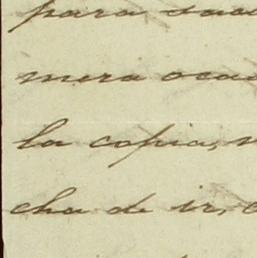 para saca
mera ocas
la copia,
cha de ir,